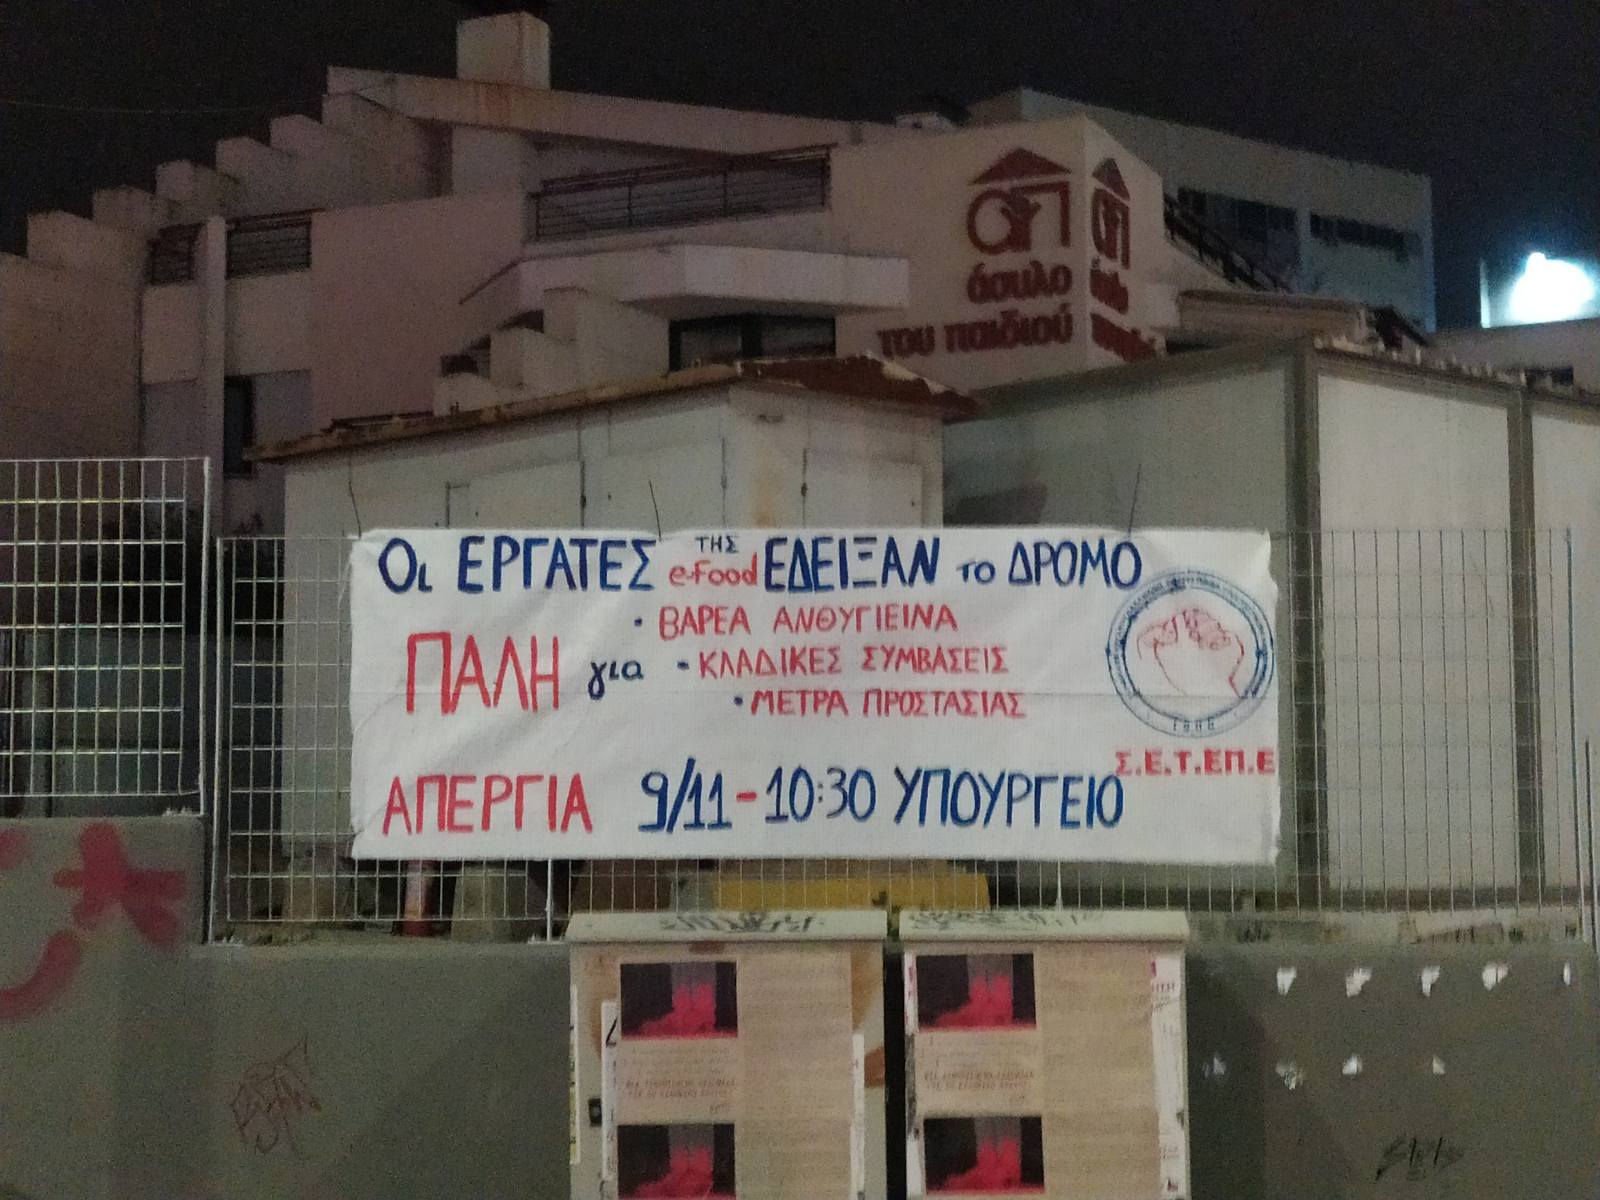 άσυλο
του παιδιού
Οι ΕΡΓΑΤΕΣ ΤΗΣ e-Food ΕΔΕΙΞΑΝ το ΔΡΟΜΟ
ΠΑΛΗ για
• ΒΑΡΕΑ ΑΝΘΥΓΙΕΙΝΑ
• ΚΛΑΔΙΚΕΣ ΣΥΜΒΑΣΕΙΣ
• ΜΕΤΡΑ ΠΡΟΣΤΑΣΙΑΣ
Σ.Ε.Τ.ΕΠ.Ε
ΑΠΕΡΓΙΑ 9/11-10:30 ΥΠΟΥΡΓΕΙΟ